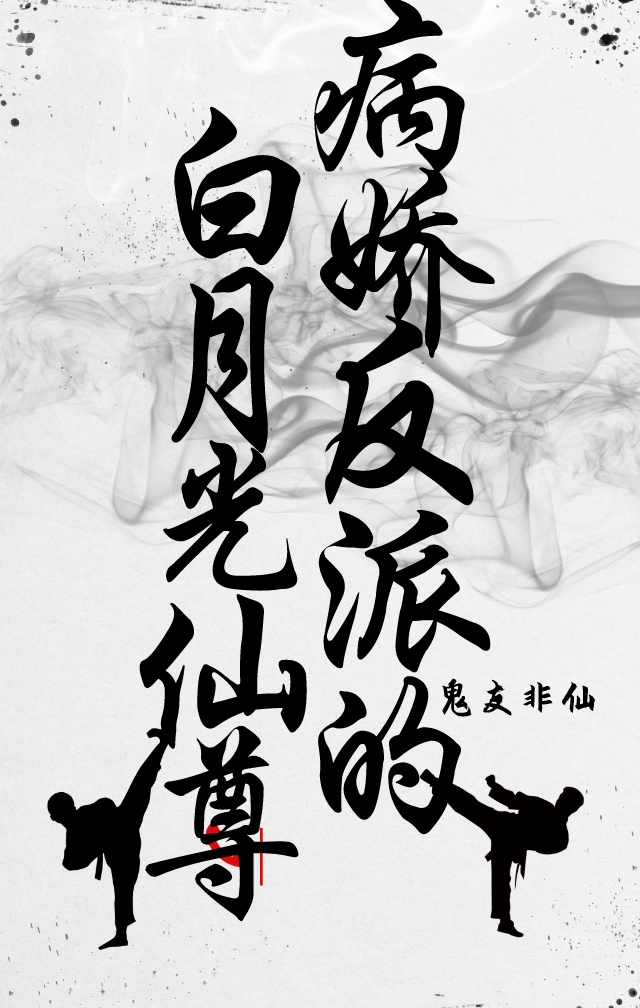 病娇反派的
白月光仙尊
鬼友非仙